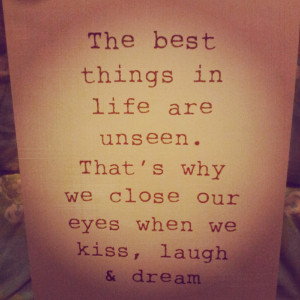 The best
things in
life are
unseen.
That's why
we close our
eyes when we
kiss, laugh
& dream